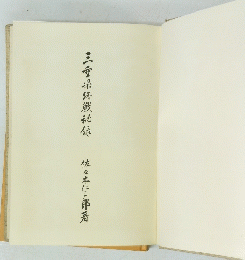 三重県終戦秘録
佐々木仁三郎著